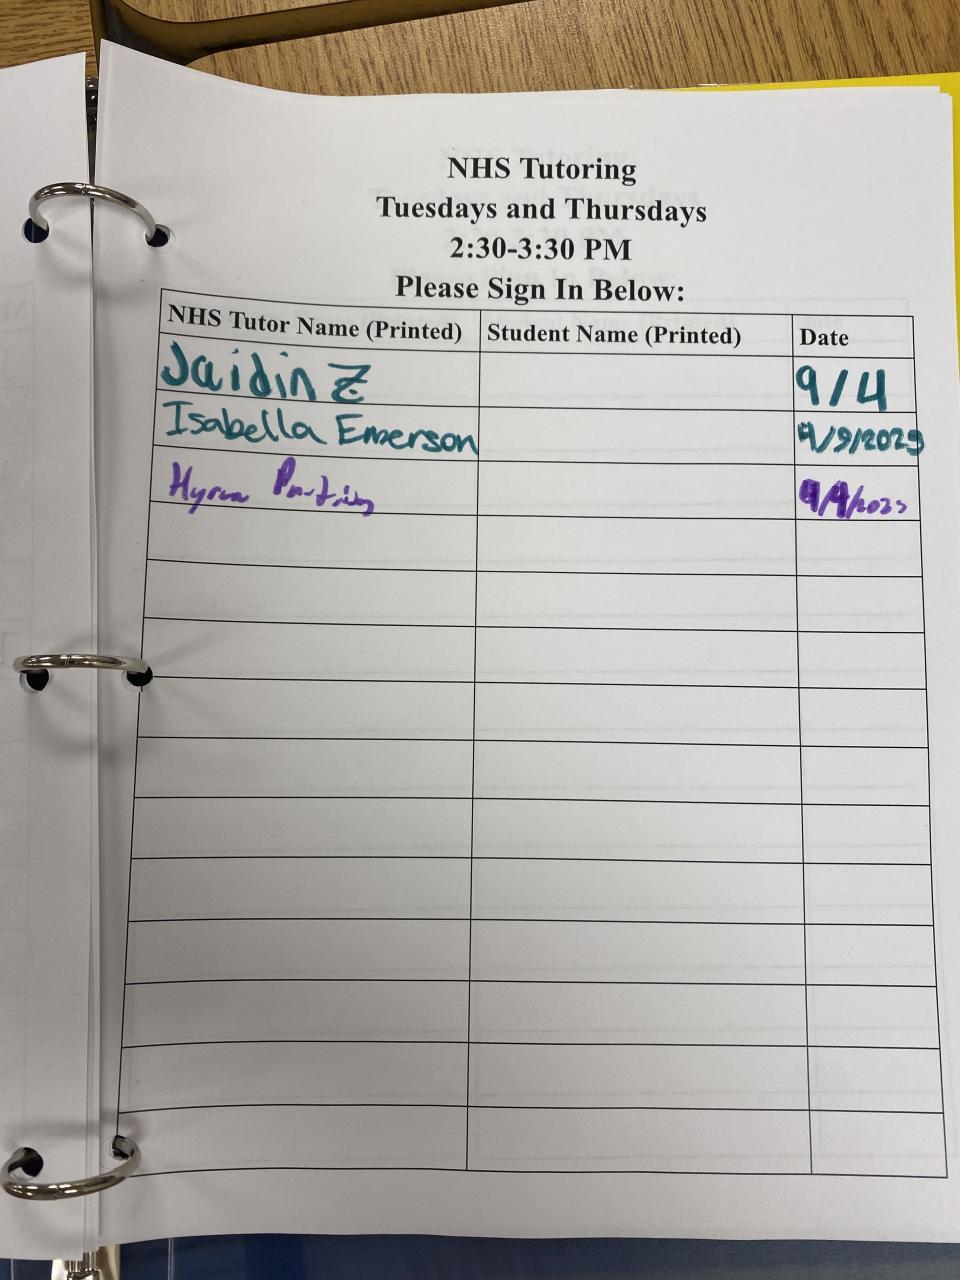 NHS Tutoring
Tuesdays and Thursdays
2:30-3:30 PM
Please Sign In Below:
NHS Tutor Name (Printed) Student Name (Printed) Date
Jaidin Z 9/4
Isabella Emerson